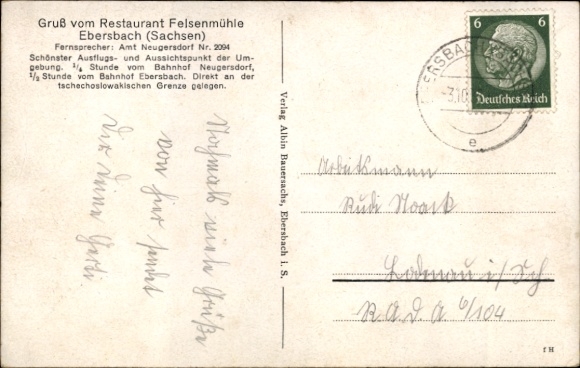 Gruß vom Restaurant Felsenmühle
Ebersbach (Sachsen)
Fernsprecher: Amt Neugersdorf Nr. 2094
Schönster Ausflugs- und Aussichtspunkt der Um-
gebung. ¼ Stunde vom Bahnhof Neugersdorf,
½ Stunde vom Bahnhof Ebersbach. Direkt an der
tschechoslowakischen Grenze gelegen.
Nochmals viele Grüße
von hier sendet
Dir Deine
Verlag Albin Bauersachs, Ebersbach i. S.
6 6
Deutsches Reich
EBERSBACH
-3.10.
e
Arbeitsmann
Rudi Noack
Lodenau i/Sch
R.A.D.A 6/104
f H